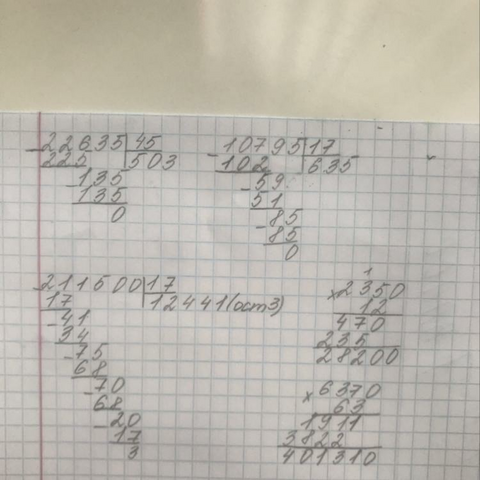 22635 | 45
225 | 503
- 135
135
0
- 10795 | 17
102 | 635
- 59
51
- 85
85
0
211500 | 17
17 | 12441 (ост 3)
- 41
34
- 75
68
- 70
68
- 20
17
3
1
× 2350
12
470
235
28200
× 6370
63
1911
3822
401310